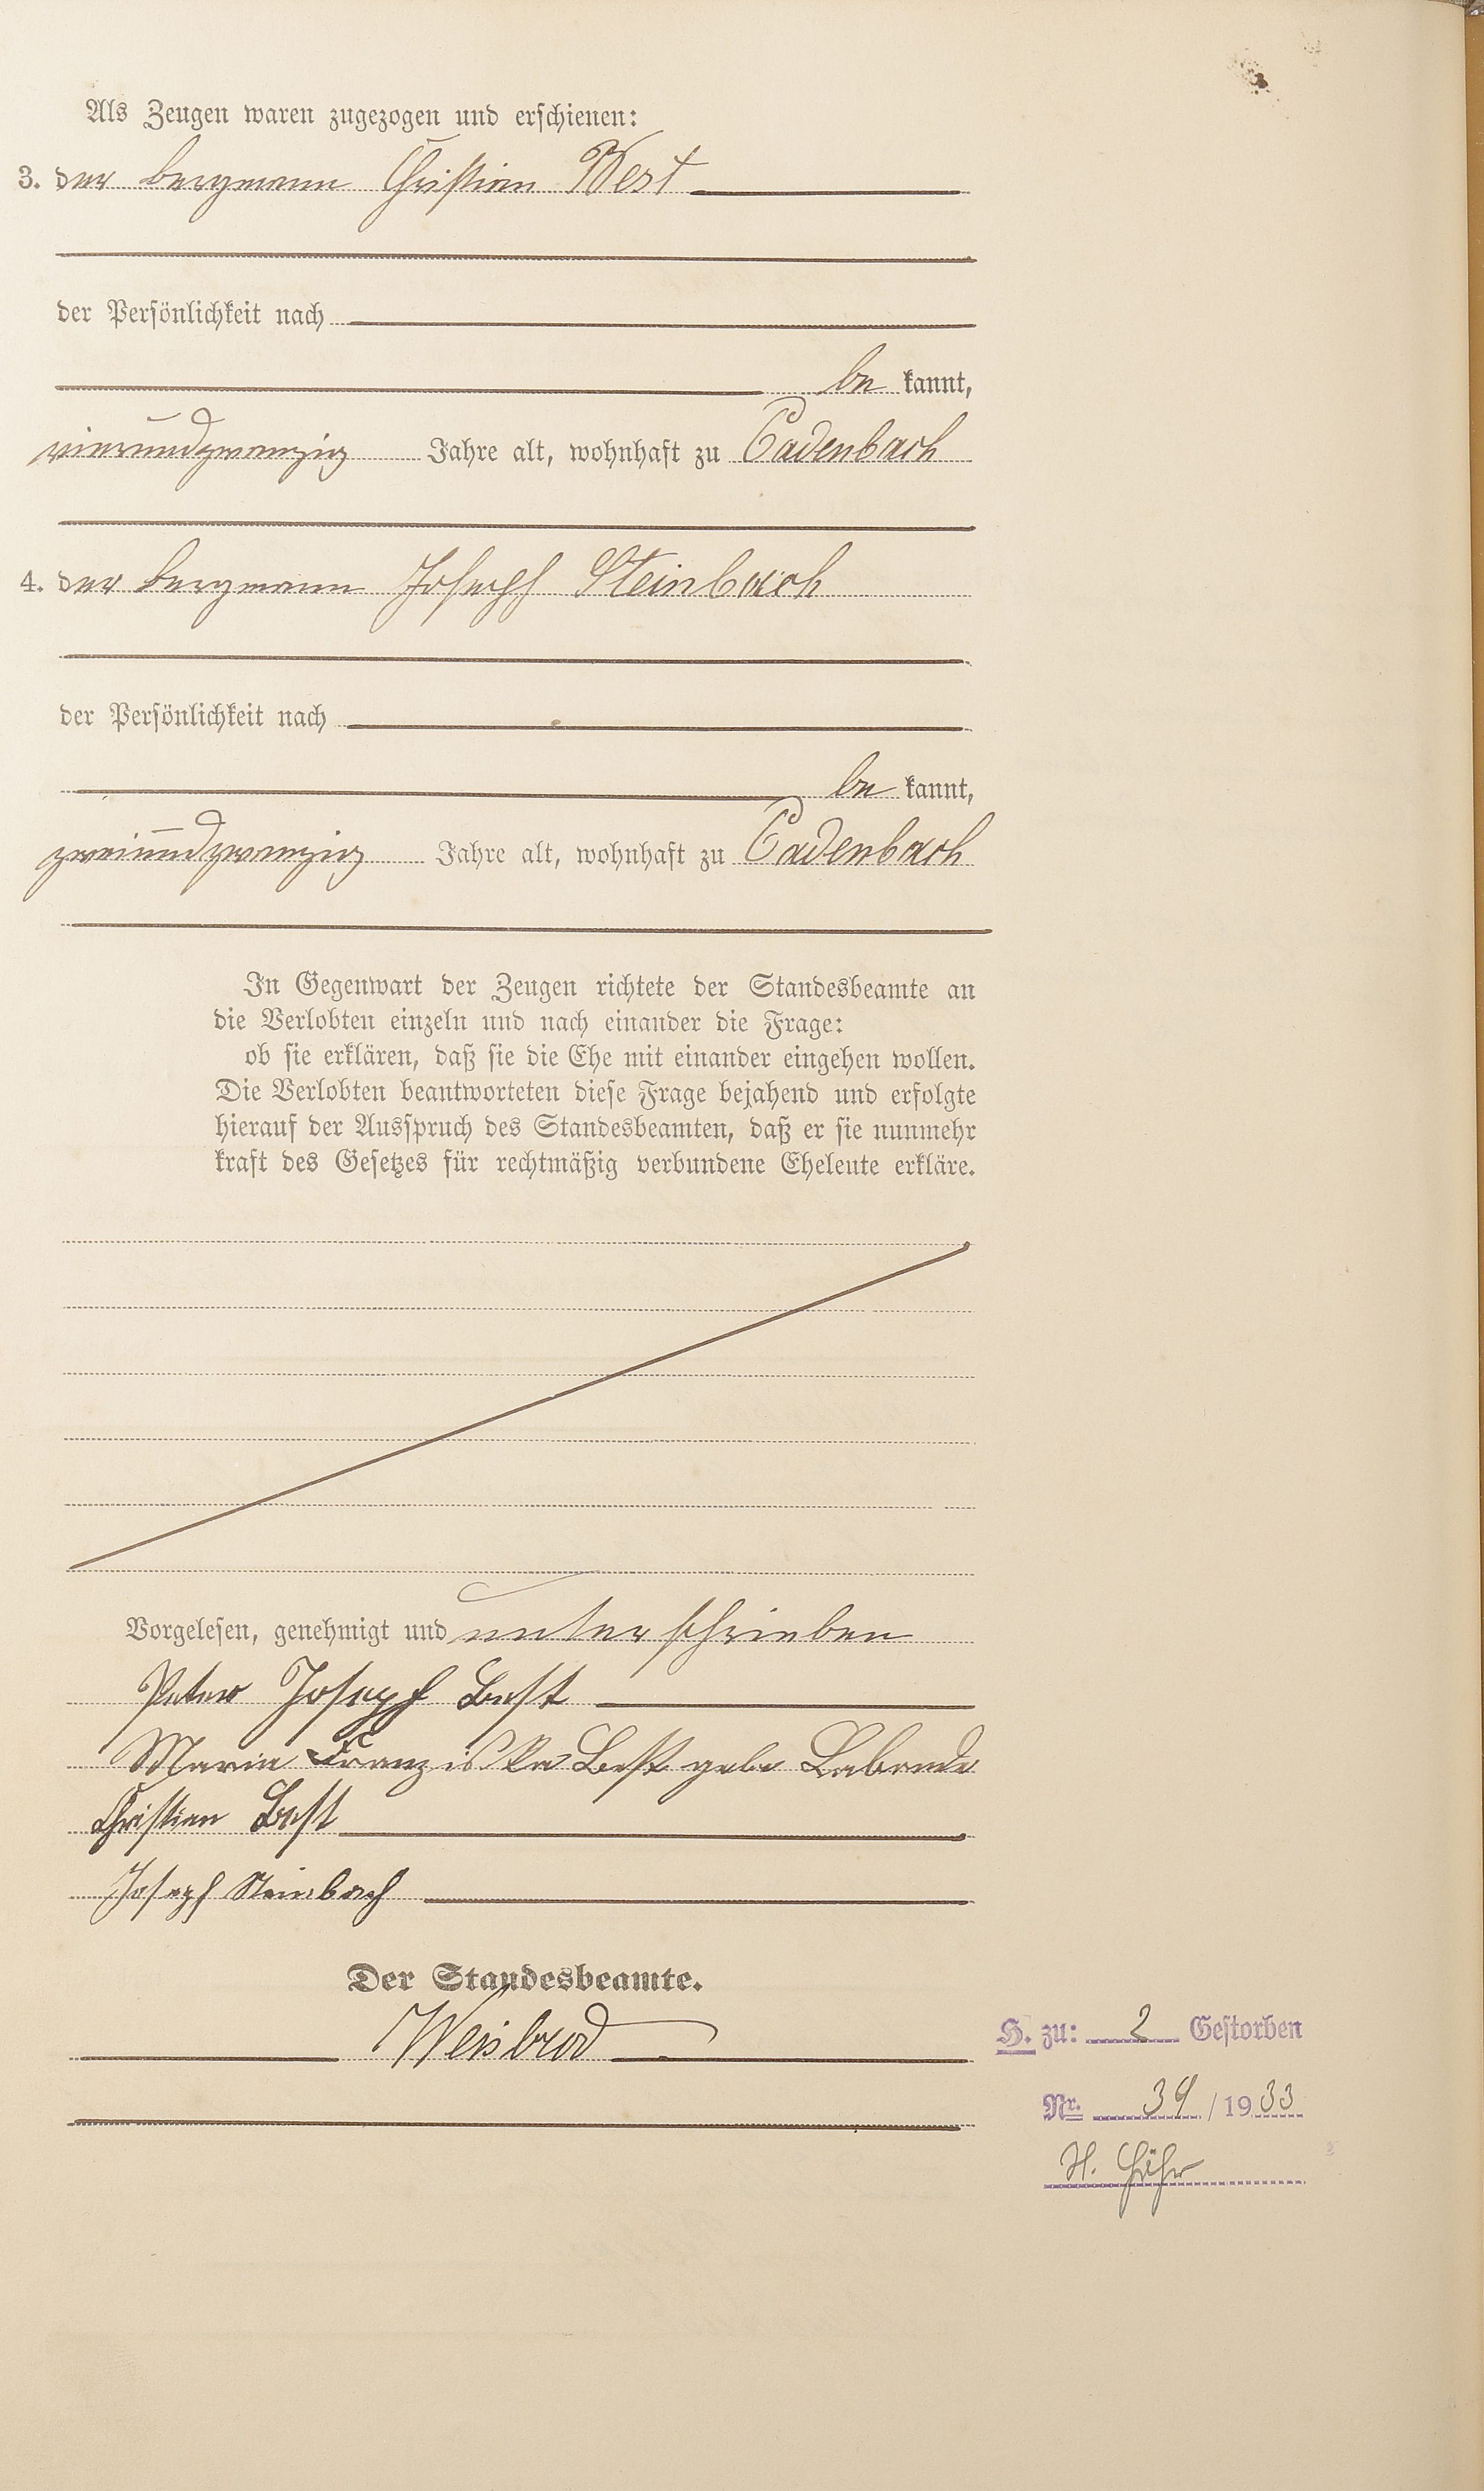 Als Zeugen waren zugezogen und erschienen:
3. der Bergmann Christian Best
der Persönlichkeit nach
be kannt,
vierundzwanzig Jahre alt, wohnhaft zu Cadenbach
4. der Bergmann Joseph Steinbach
der Persönlichkeit nach
be kannt,
zweiundzwanzig Jahre alt, wohnhaft zu Cadenbach
In Gegenwart der Zeugen richtete der Standesbeamte an
die Verlobten einzeln und nach einander die Frage:
ob sie erklären, daß sie die Ehe mit einander eingehen wollen.
Die Verlobten beantworteten diese Frage bejahend und erfolgte
hierauf der Ausspruch des Standesbeamten, daß er sie nunmehr
kraft des Gesetzes für rechtmäßig verbundene Eheleute erkläre.
Vorgelesen, genehmigt und unterschrieben
Peter Joseph Best
Maria Franziska Best gebr Labonde
Christian Best
Joseph Steinbach
Der Standesbeamte.
Weisbrod
H. zu: 2 Gestorben
Nr. 39 / 1933
H.